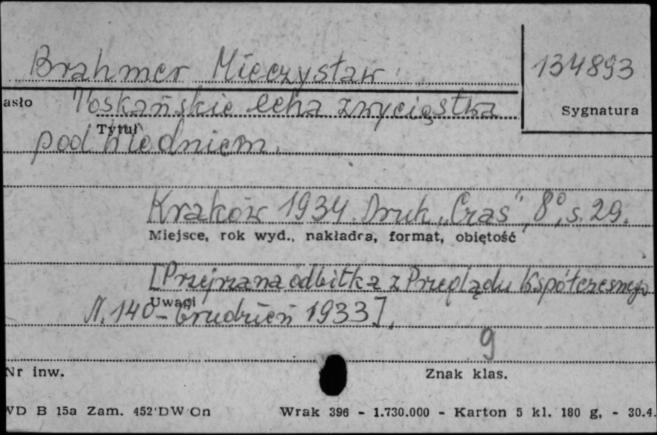 Brahmer Mieczysław 134893
asło Toskańskie echa zwycięstwa Sygnatura
Tytuł
pod Wiedniem.
Kraków 1934. Druk „Czas", 8°, s. 29.
Miejsce, rok wyd., nakładca, format, objętość
[Przejrzana odbitka z Przeglądu Współczesnego
Uwagi
N. 140 - Grudzień 1933].
9
Nr inw. Znak klas.
WD B 15a Zam. 452 DW On Wrak 396 - 1.730.000 - Karton 5 kl. 180 g. - 30.4.